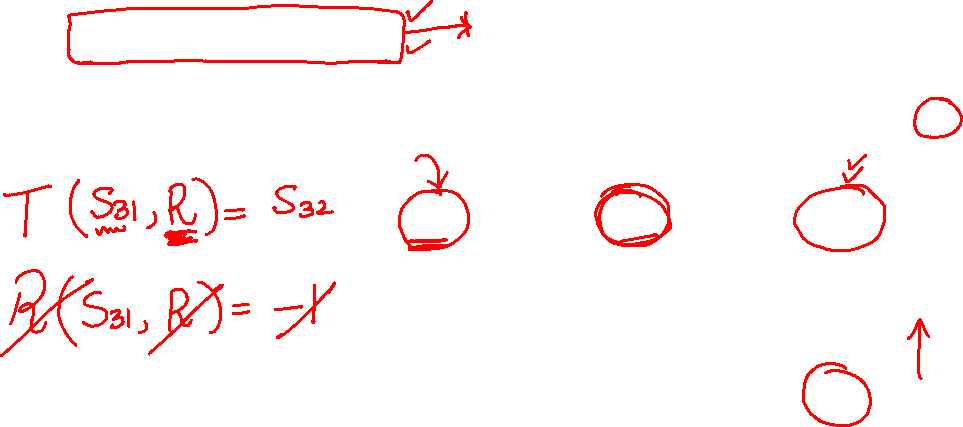 T(S31, R) = S32
R(S31, R) = -1